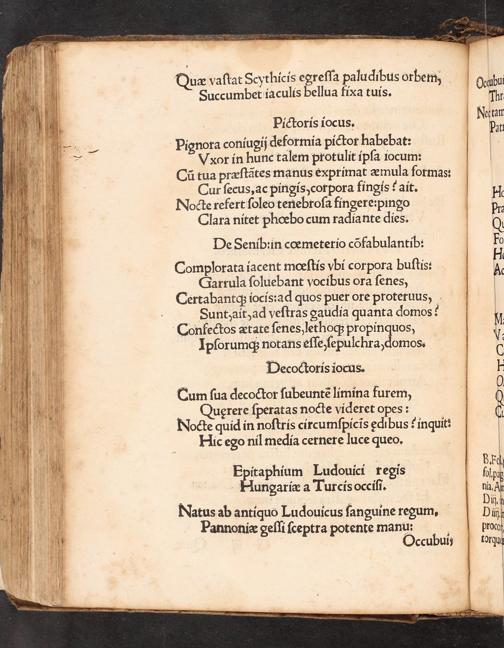 Quæ vaſtat Scythicis egreſſa paludibus orbem,
Succumbet iaculis bellua fixa tuis.
Pictoris iocus.
Pignora coniugij deformia pictor habebat:
Vxor in hunc talem protulit ipſa iocum:
Cū tua præſtātes manus exprimat æmula formas:
Cur ſecus, ac pingis, corpora fingis? ait.
Nocte refert ſoleo tenebroſa fingere: pingo
Clara nitet phœbo cum radiante dies.
De Senib: in cœmeterio cōfabulantib:
Complorata iacent mœſtis vbi corpora buſtis:
Garrula ſoluebant vocibus ora ſenes,
Certabantq; iocis: ad quos puer ore proteruus,
Sunt, ait, ad veſtras gaudia quanta domos?
Confectos ætate ſenes, lethoq; propinquos,
Ipſorumq; notans eſſe, ſepulchra, domos.
Decoctoris iocus.
Cum ſua decoctor ſubeuntē limina furem,
Quęrere ſperatas nocte videret opes:
Nocte quid in noſtris circumſpicīs ędibus? inquit:
Hic ego nil media cernere luce queo.
Epitaphium Ludouici regis
Hungariæ a Turcis occiſi.
Natus ab antiquo Ludouicus ſanguine regum,
Pannoniæ geſſi ſceptra potente manu:
Occubui,